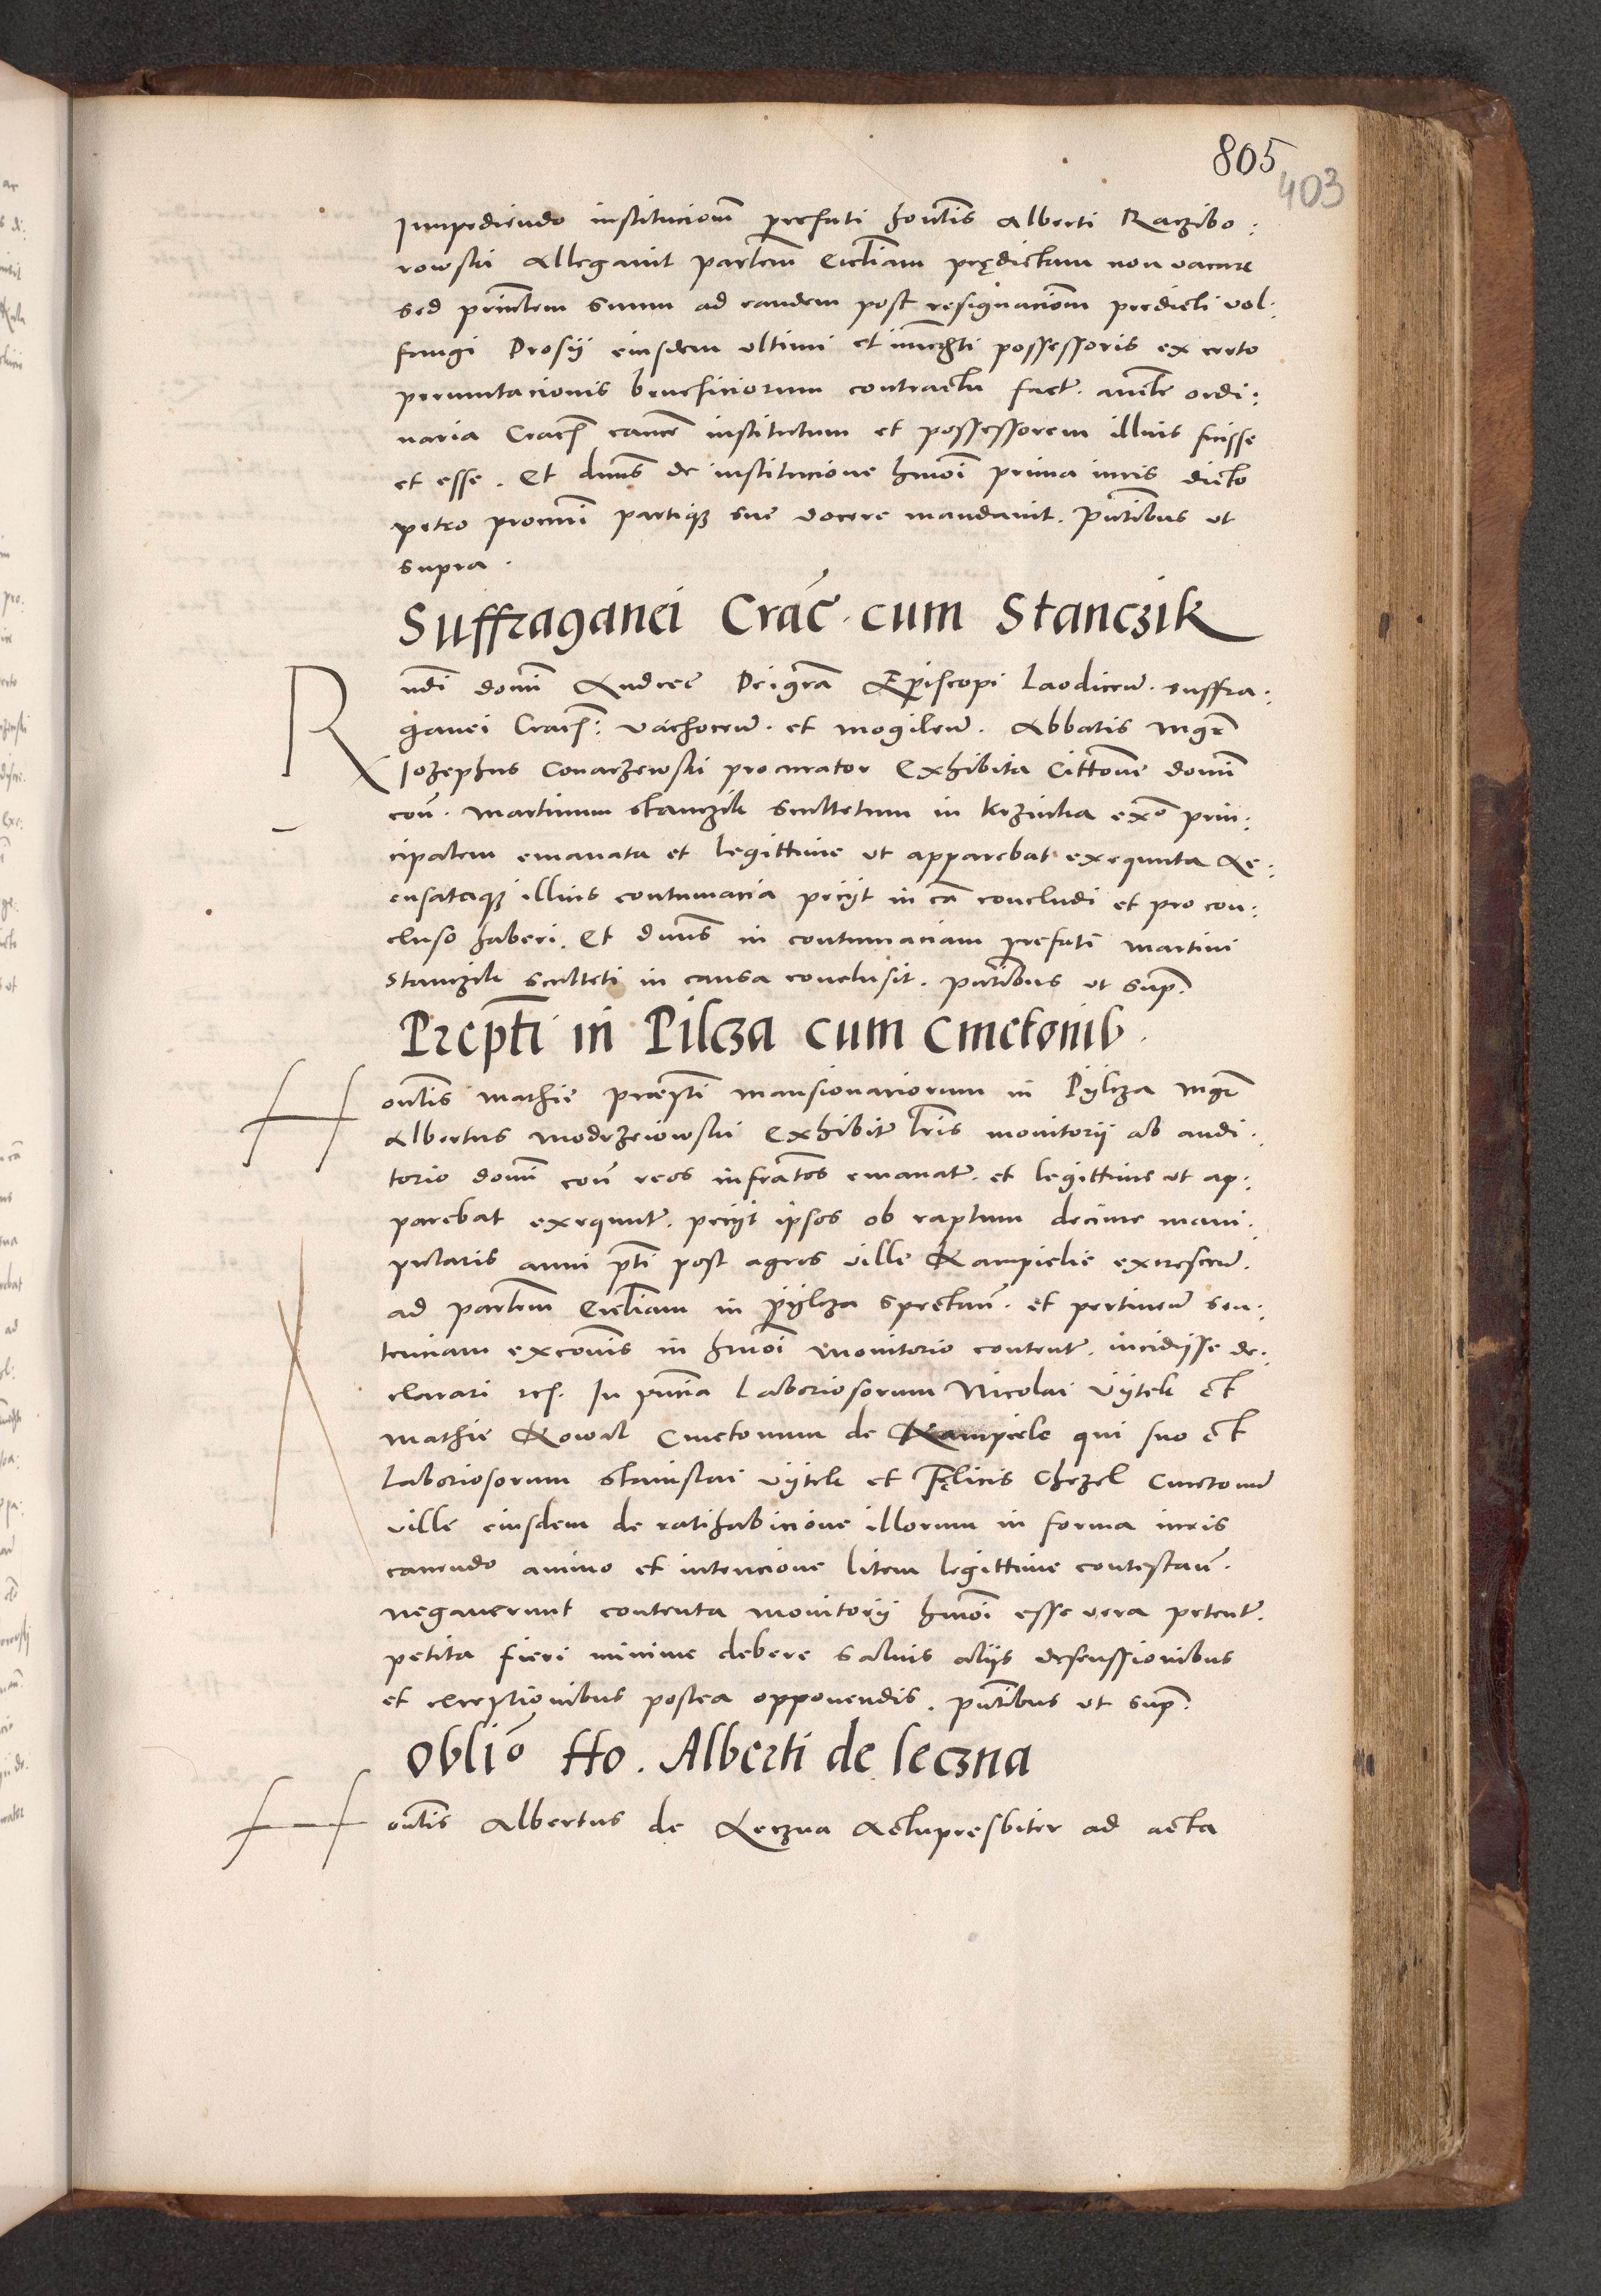 805
403
Impediendo institucioni prefati hon̄tis Alberti Raczibo:
rowski Allegavit parl̄em Eccl̄iam prędictam non vacare
sed prin̄lem suum ad eandem post resignaciōm predicti vol:
fangi Drosii eiusdem vltimi et imēti possessoris ex certo
permutacionis beneficiorum contractu fact. auc̄te ordi:
naria Crac̄ can̄ce institutum et possessorem illius fuisse
et esse. Et dn̄us de institucione hmōi prima iuris dicto
petro procurī partiqȝ sue docere mandavit. pn̄tibus vt
supra.
Suffraganei Crac̄. cum Stanczik
Rn̄di domī Andree Dei gr̄a Episcopi Laodiceñ. suffra:
ganei Crac̄: vachoceñ. et mogileñ. Abbatis mgr̄
Iozephus Conarzewski procurator Exhibita Citt̄one domī
con̄. martinum stanczik scultetum in krzinka ex̊ prin:
cipalem emanata et legittime vt apparebat exequuta Ac:
cusataqȝ illius contumacia peciit in cā concludi et pro con:
cluso haberi. Et dn̄us in contumaciam prefati martini
Stanczik sculteti in causa conclusit. pn̄tibus vt sup̄.
Prep̄ti in Pilcza cum Cmetonib.
Hon̄tis mathie prep̄ti mansionariorum in Pylcza mgr̄
Albertus modrzeiowski Exhibit. l̄ris monitorii ab audi:
torio domī con̄ reos infratos emanat. et legittime vt ap:
parebat exequut. peciit ipsos ob raptum decime mani:
pularis anni p̄ti post agros ville Kampielie excrescen̄.
ad parl̄em Eccl̄iam in pylcza spectan̄. et pertinen̄ sen:
tenciam excōis in hmōi monitorio content. incidisse de:
clarari etc. In pn̄cia Laboriosorum Nicolai Vytek et
mathie Kowal Cmetonum de Kampiele qui suo et
Laboriosorum stanislai vytek et Fęlicis Chezel Cmetonum
ville eiusdem de ratihabicione illorum in forma iuris
cavendo animo et intencione litem legittime contestan̄.
negaverunt contenta monitorii hmōi esse vera petent.
petita fieri minime debere salvis aliis defenssionibus
et excepcionibus postea opponendis. pn̄tibus vt sup̄.
Oblio̊ Ho. Alberti de leczna
Hon̄tis Albertus de Leczna Actupresbiter ad acta